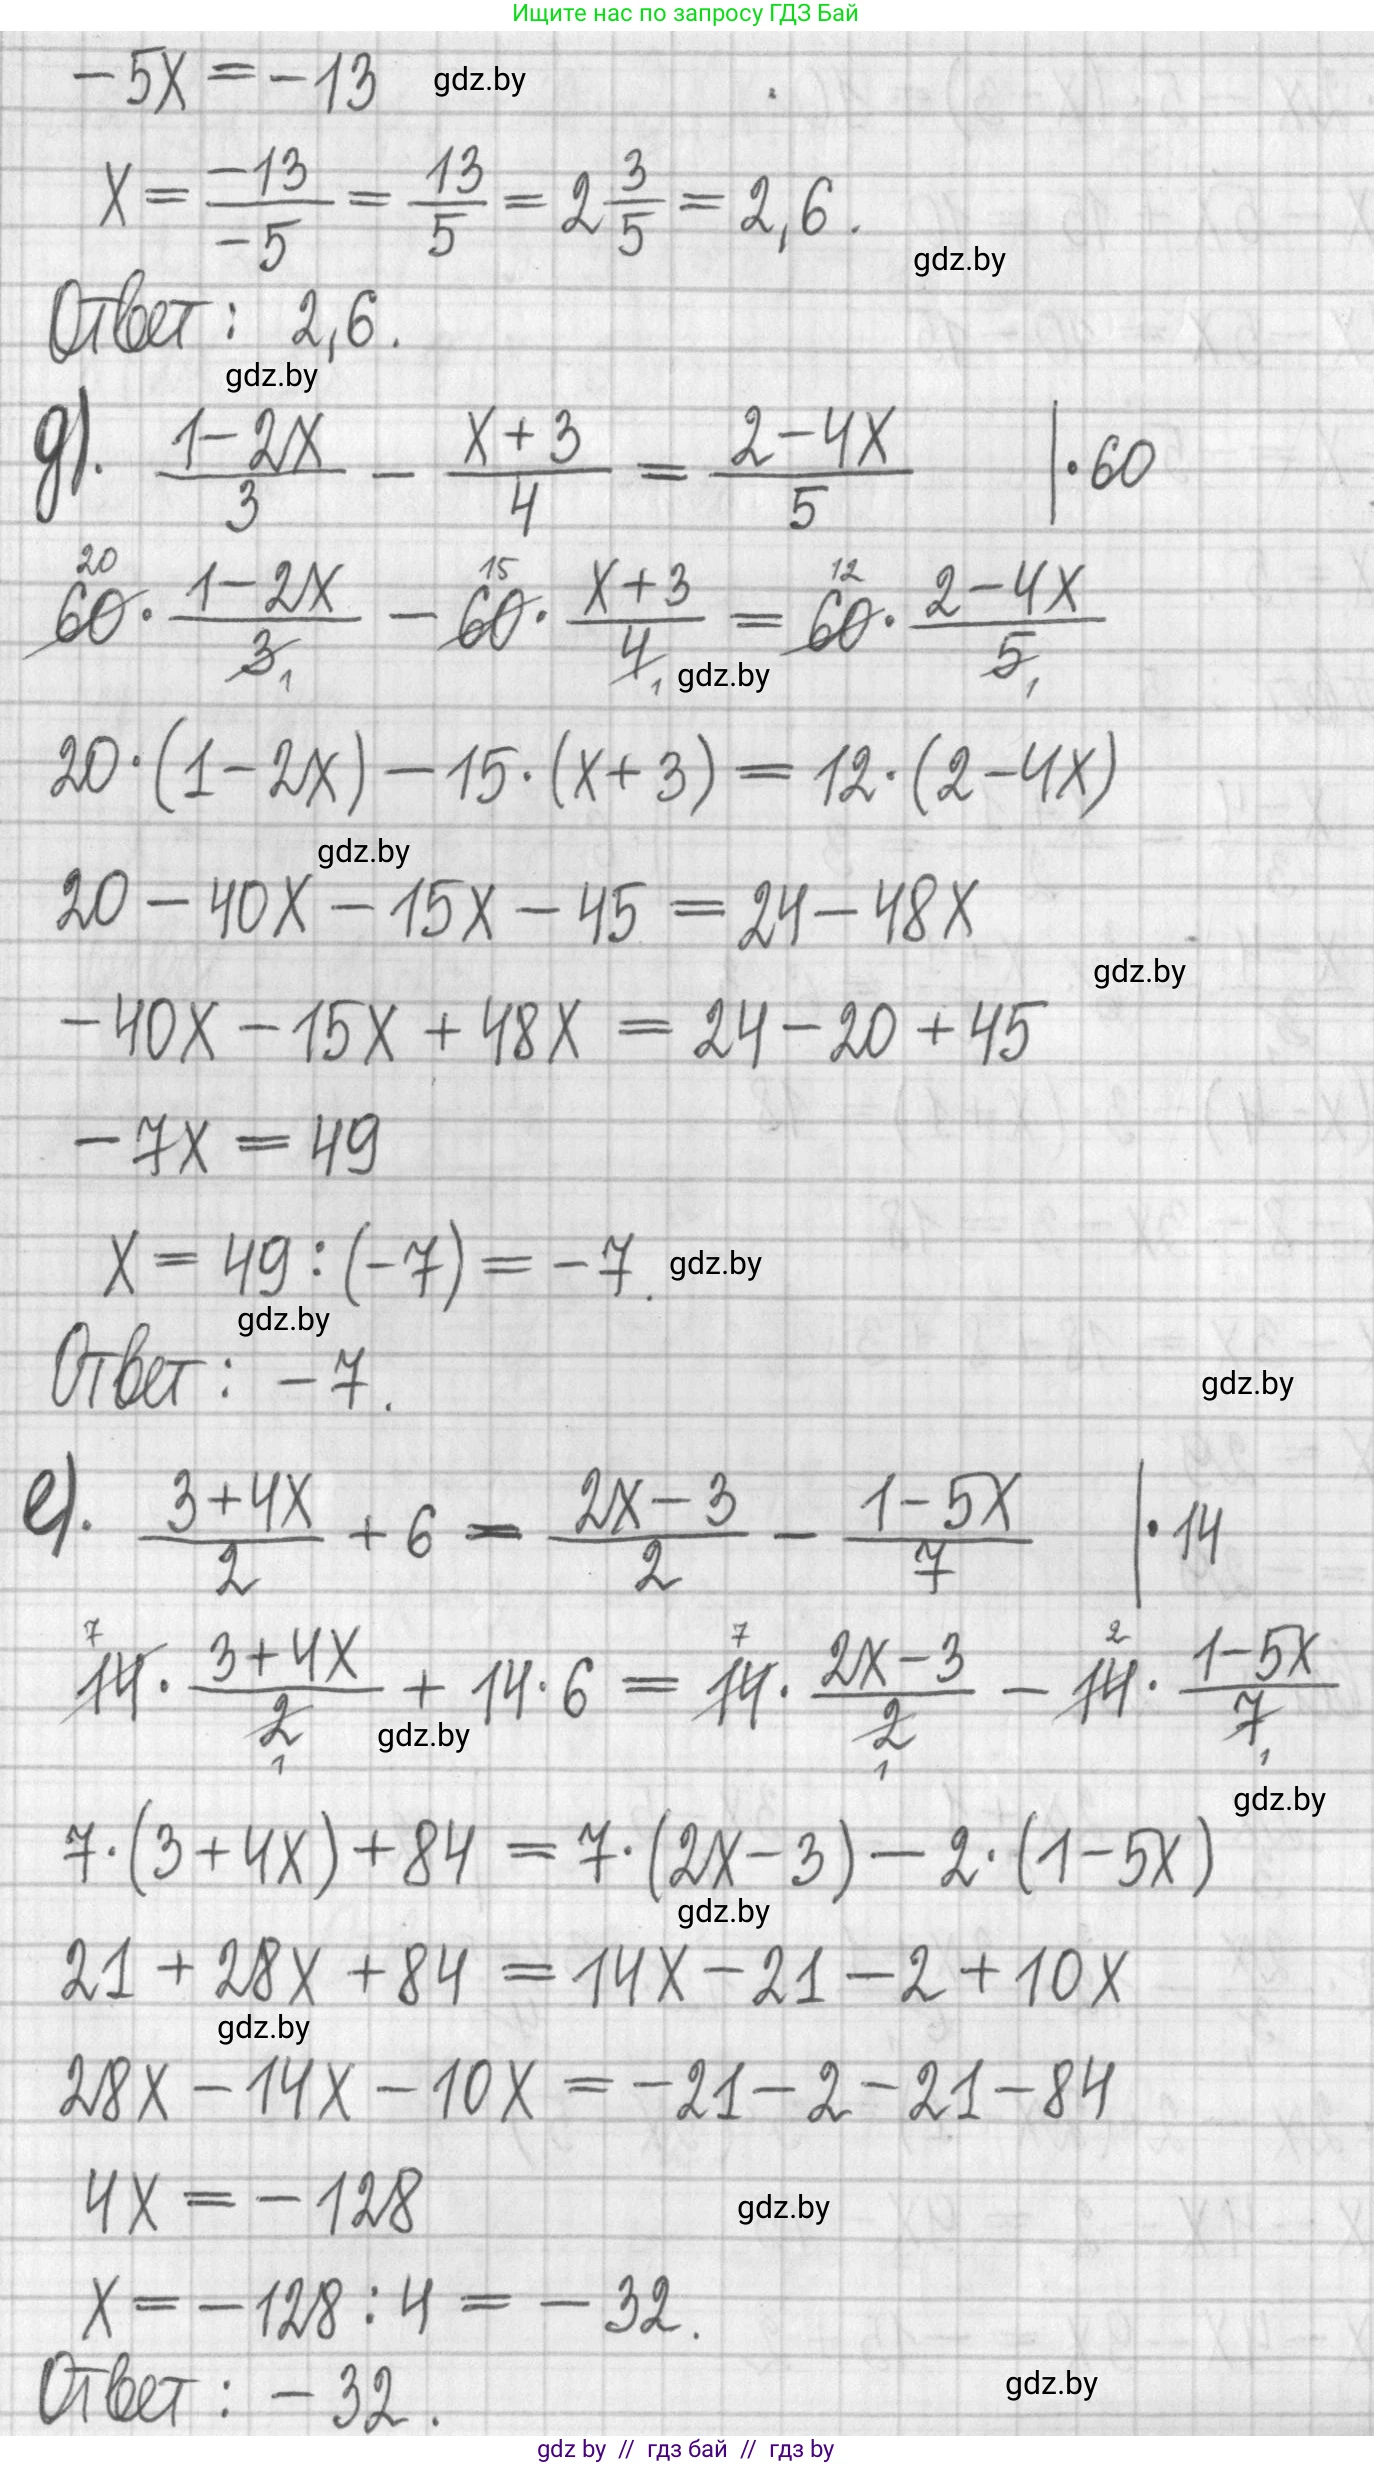 Ищите нас по запросу ГДЗ Бай
-5x = -13 gdz.by
x = -13/-5 = 13/5 = 2 3/5 = 2,6.
gdz.by
Ответ: 2,6.
gdz.by
д). (1-2x)/3 - (x+3)/4 = (2-4x)/5 | ·60
20 15 12
60 · (1-2x)/3 1 - 60 · (x+3)/4 1 = 60 · (2-4x)/5 1
gdz.by
20·(1-2x) - 15·(x+3) = 12·(2-4x)
gdz.by
20 - 40x - 15x - 45 = 24 - 48x
gdz.by
-40x - 15x + 48x = 24 - 20 + 45
-7x = 49
x = 49 : (-7) = -7. gdz.by
gdz.by
Ответ: -7.
gdz.by
е). (3+4x)/2 + 6 = (2x-3)/2 - (1-5x)/7 | ·14
7 7 2
14 · (3+4x)/2 1 + 14·6 = 14 · (2x-3)/2 1 - 14 · (1-5x)/7 1
gdz.by
gdz.by
7·(3+4x) + 84 = 7·(2x-3) - 2·(1-5x)
gdz.by
21 + 28x + 84 = 14x - 21 - 2 + 10x
gdz.by
28x - 14x - 10x = -21 - 2 - 21 - 84
4x = -128
gdz.by
x = -128 : 4 = -32.
Ответ: -32.
gdz.by
gdz by // гдз бай // гдз by